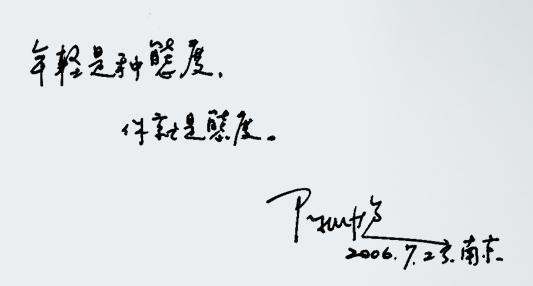 年輕是种態度,
件就是態度。
2006.7.23.南京.